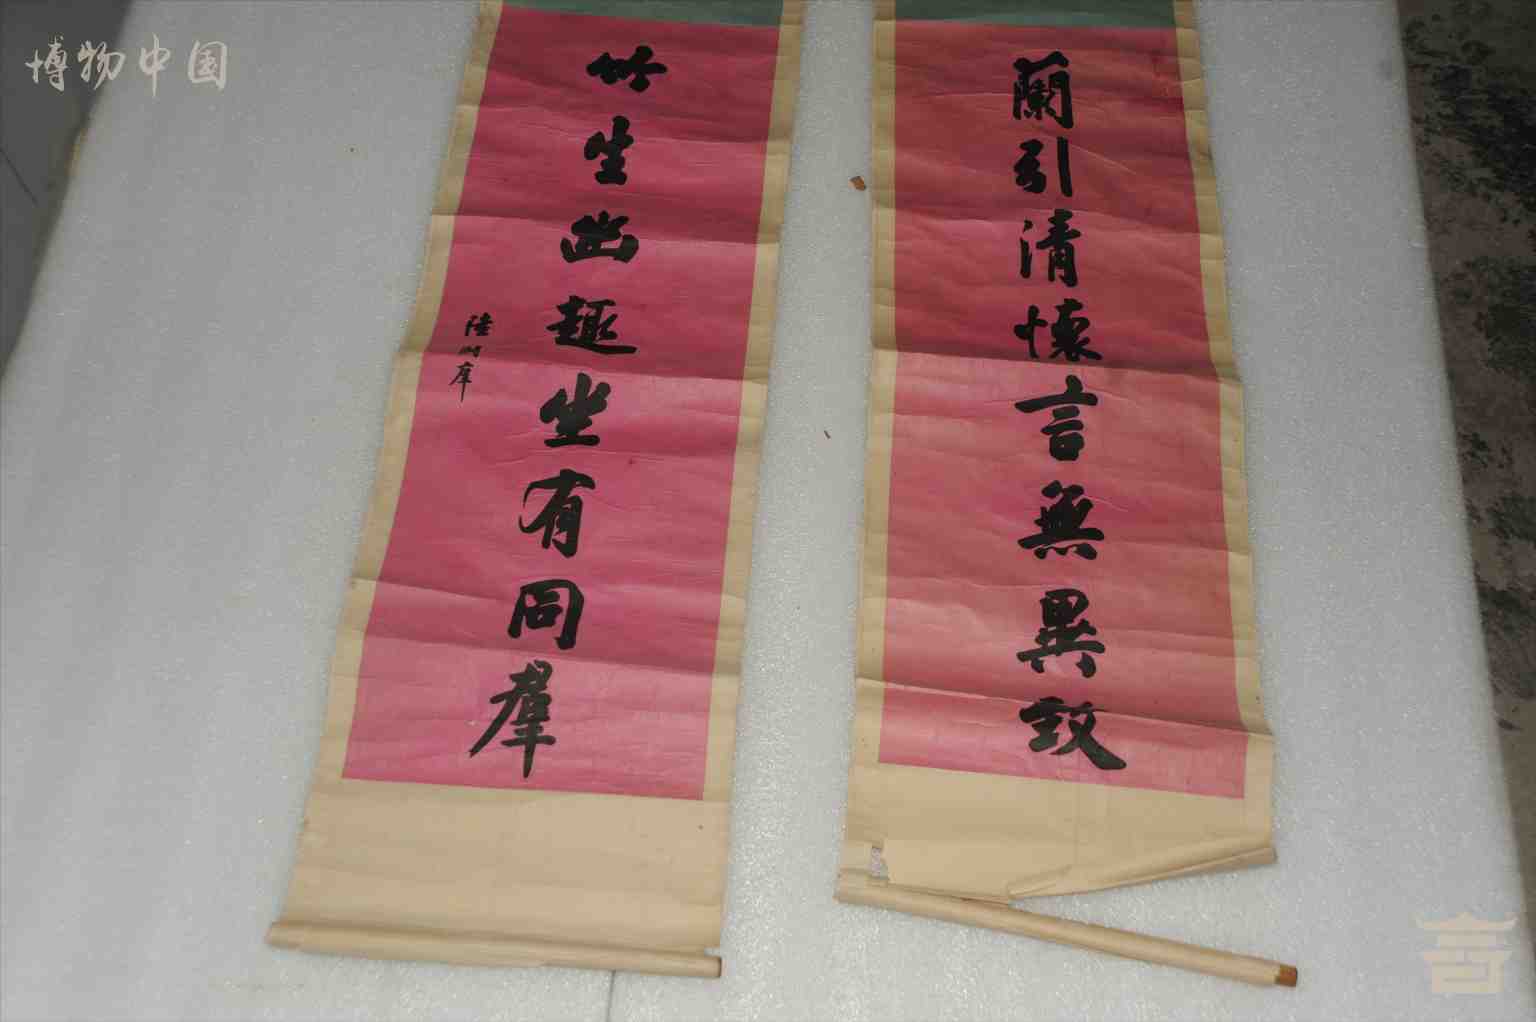 博物中国
蘭引清懷言無異致
竹生幽趣坐有同羣
陸润庠